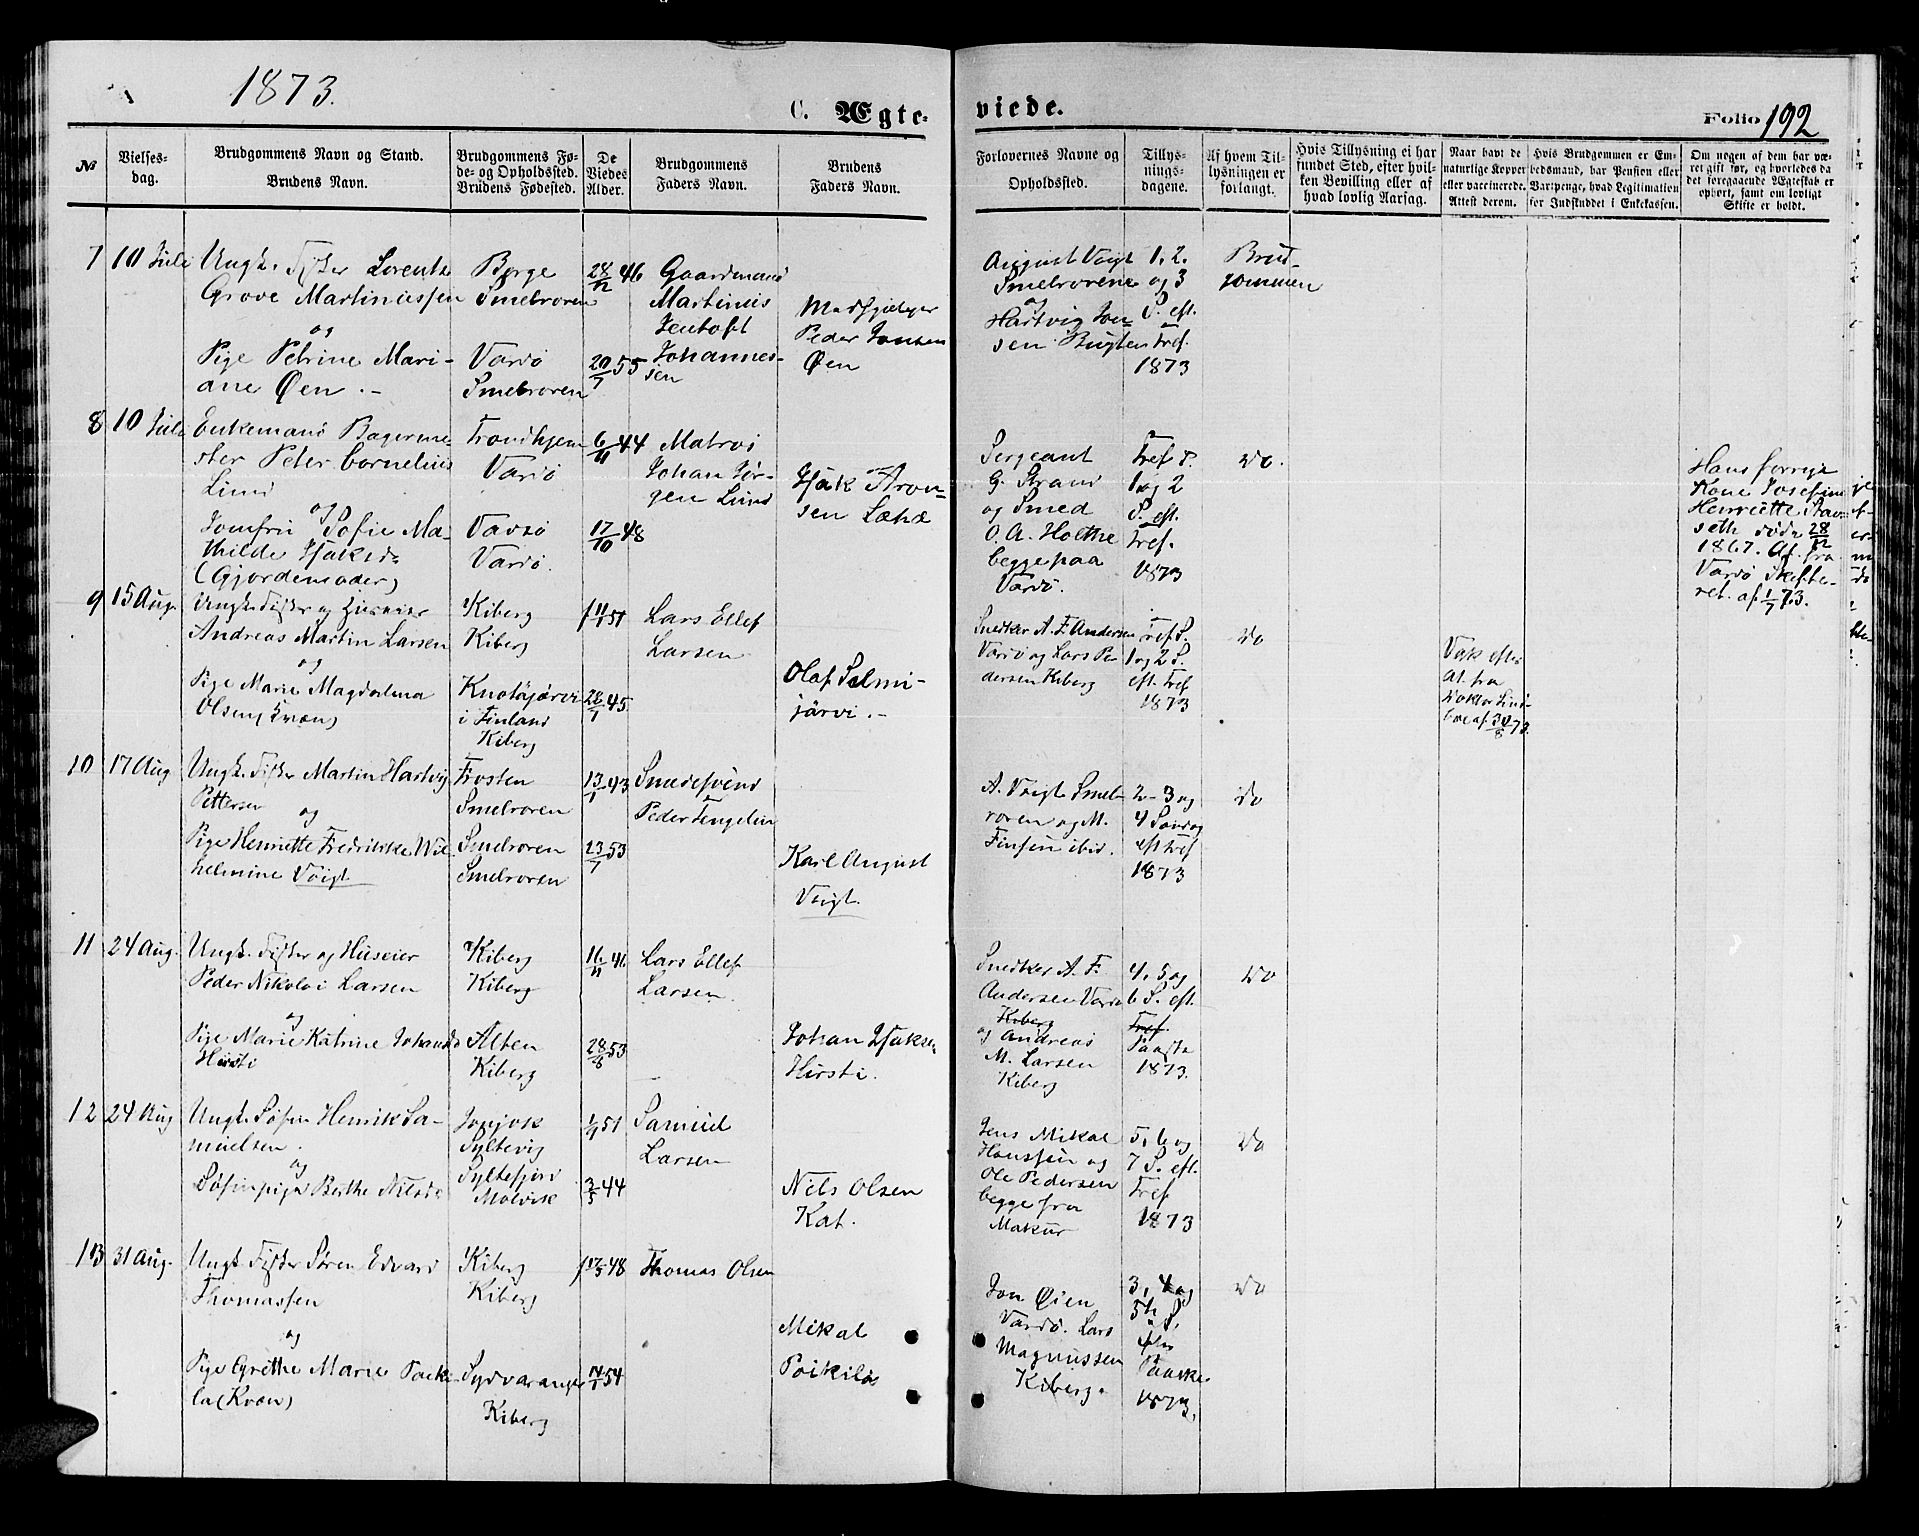 1873.
C. Ægte-
viede.
Folio 192
№
Vielses-
dag.
Brudgommens Navn og Stand.
Brudens Navn.
Brudgommens Fø-
de- og Opholdssted.
Brudens Fødested.
De
Viedes
Alder.
Brudgommens
Faders Navn.
Brudens
Faders Navn.
Forlovernes Navne og
Opholdssted.
Tillys-
nings-
dagene.
Af hvem Til-
lysningen er
forlangt.
Hvis Tillysning ei har
fundet Sted, efter hvil-
ken Bevilling eller af
hvad lovlig Aarsag.
Naar havt de
naturlige Kopper
eller vaccinerede.
Attest derom.
Hvis Brudgommen er Em-
bedsmand, har Pension eller
Vartpenge, hvad Legitimation
for Indskuddet i Enkekassen.
Om nogen af dem har væ-
ret gift før, og hvorledes da
det foregaaende Ægteskab er
ophørt, samt om lovligt
Skifte er holdt.
7
10 Juli
Ungk. Fisker Lorentz
Grove Martinussen
og
Pige Petrine Mari-
ane Øen .-
Berge
Smelroren
Vardö
Smelroren
28/12 46
20/7 55
Gaardmand
Martinus
Jentoft
Johannes-
sen
Madhjælper
Peder Jonsen
Øen
August Voigt
Smelrorene
og
Hartvig Jon-
sen Bugten
1. 2.
og 3
S. eft.
Tref.
1873
Brud-
gommen
8
10 Juli
Enkemand Bagerme-
ster Peter Cornelius
Lund
og
Jomfru Sofie Ma-
thilde Isaksd.
(Gjordemoder)
Trondhjem
Vardö
Vardö
Vardö.
6/11 44
17/10 48
Matros
Johan Jør-
gen Lund
Isak Aron-
sen Læhæ
Sergeant
G. Strand
og Smed
O. A. Holthe
begge paa
Vardö.
Tref. S.
1 og 2
S. eft.
Tref.
1873
Do.
Hans forrige
Kone Josefine
Henriette
seth døde 28/12
1867. At. fra
Vardö Skifte-
ret. af 1/7 73.
9
15 Aug.
Ungk. Fisker og Huseier
Andreas Martin Larsen
og
Pige Marie Magdalena
Olsen (Kvæn)
Kiberg
Kiberg
i Finland
Kiberg
51
28/1 45
Lars Ellef
Larsen
Olaf Salmi-
järvi .-
Snedker A. F. Andersen
Vardö og Lars Pe-
dersen Kiberg
Tref S.
1 og 2 S.
eft. Tref
1873
Do
Vak efter
At. fra
Doktor Lind-
boe af 30/8 73.
10
17 Aug
Ungk. Fisker Martin Hartvig
Pettersen
og
Pige Henriette Fredrikke Wil-
helmine Voigt
Frosten
Smelroren
Smelroren
Smelroren
13/1 43
23/7 53
Smedesvend
Peder Tengelin
Karl August
Voigt.
A. Voigt Smel-
roren og M.
Finsen ibid.
2- 3 og
4 Søndag
eft Tref
1873
Do
11
24 Aug.
Ungk. Fisker og Huseier
Peder Nikolai Larsen
og
Pige Marie Katrine Johansd.
Hirsti
Kiberg
Kiberg
Alten
Kiberg
16/11 46
28/8 53
Lars Ellef
Larsen.
Johan Isaksen
Hirsti.
Snedker A. F.
Andersen Vardö
Kiberg
og Andreas
M. Larsen
Kiberg
4, 5 og
6 S. eft.
Tref
Paaske
1873.
Do
12
24 Aug
Ungk. Søfin Henrik Sa-
muelsen.
og
Søfinpige Berthe Nilsd.
Syltevig
Syltefjord
Molvik
1/9 51
3/5 44
Samuel
Larsen
Nils Olsen
Kat.
Jens Mikal
Hansen og
Ole Pedersen
begge fra
Makur
5, 6 og
7 S. eft.
Tref
1873
Do
13
31 Aug.
Ungk. Fisker Søren Edvard
Thomassen
og
Pige Grethe Marie Poiki-
la (Kvæn)
Kiberg
Kiberg
Sydvaranger
Kiberg
48
14/1 54
Thomas Olsen
Mikal
Poikila
Jon Øien
Vardö. Lars
Magnussen
Kiberg.
3, 4 og
5te S.
efter
Paaske
1873.
Do